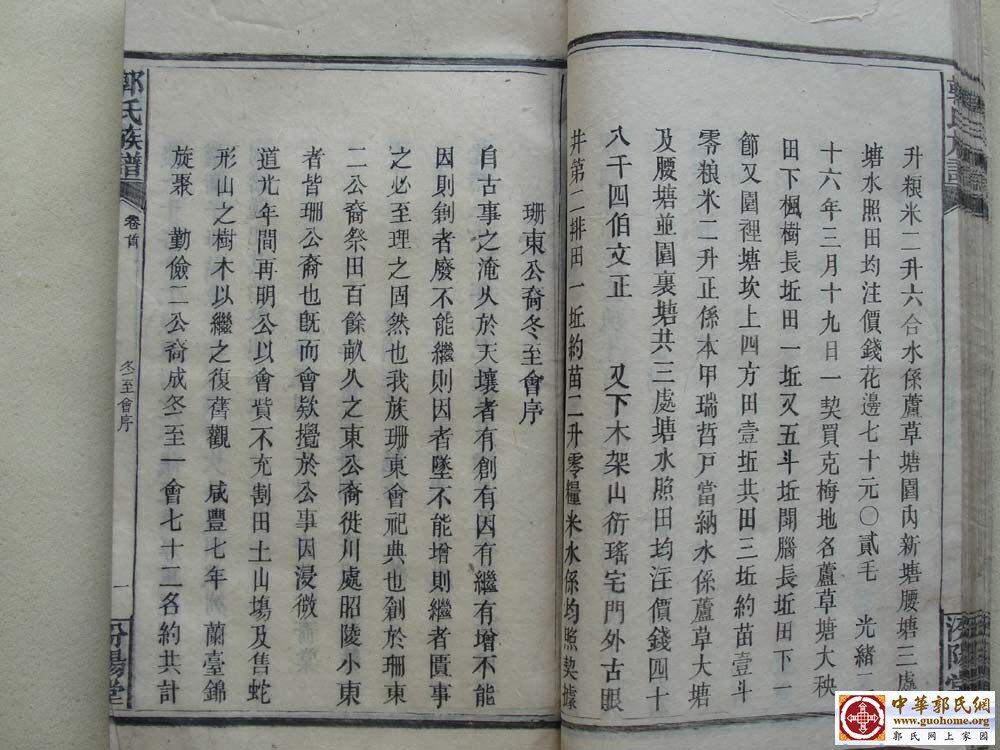 升粮米二升六合水係蘆草塘園內新塘腰塘三處
塘水照田均注價錢花邊七十元〇貳毛　光緒二
十六年三月十九日一契買克梅地名蘆草塘大秧
田下楓樹長坵田一坵又五斗坵開腦長坵田下一
節又園裡塘坎上四方田壹坵共田三坵約苗壹斗
零粮米二升正係本甲瑞哲戸當納水係蘆草大塘
及腰塘並園裏塘共三處塘水照田均注價錢四十
八千四伯文正　又下木架山衍瑤宅門外古眼
井第二排田一坵約苗二升零糧米水係均照契據
珊東公裔冬至會序
自古事之淹久於天壤者有創有因有繼有增不能
因則創者廢不能繼則因者墜不能增則繼者匱事
之必至理之固然也我族珊東會祀典也創於珊東
二公裔祭田百餘畝久之東公裔徙川處昭陵小東
者皆珊公裔也旣而會欵攪於公事因浸微
道光年間再明公以會貲不充割田土山塲及售蛇
形山之樹木以繼之復舊觀　咸豐七年蘭臺錦
旋聚　勤儉二公裔成冬至一會七十二名約共計
郭氏族譜
卷首
冬至會序
一
汾陽堂
郭氏族譜
汾陽堂
中華郭氏網
www.guohome.org
郭氏网上家园